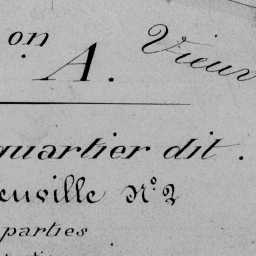 on
A.
Vieux
quartier dit.
euville N° 2
parties